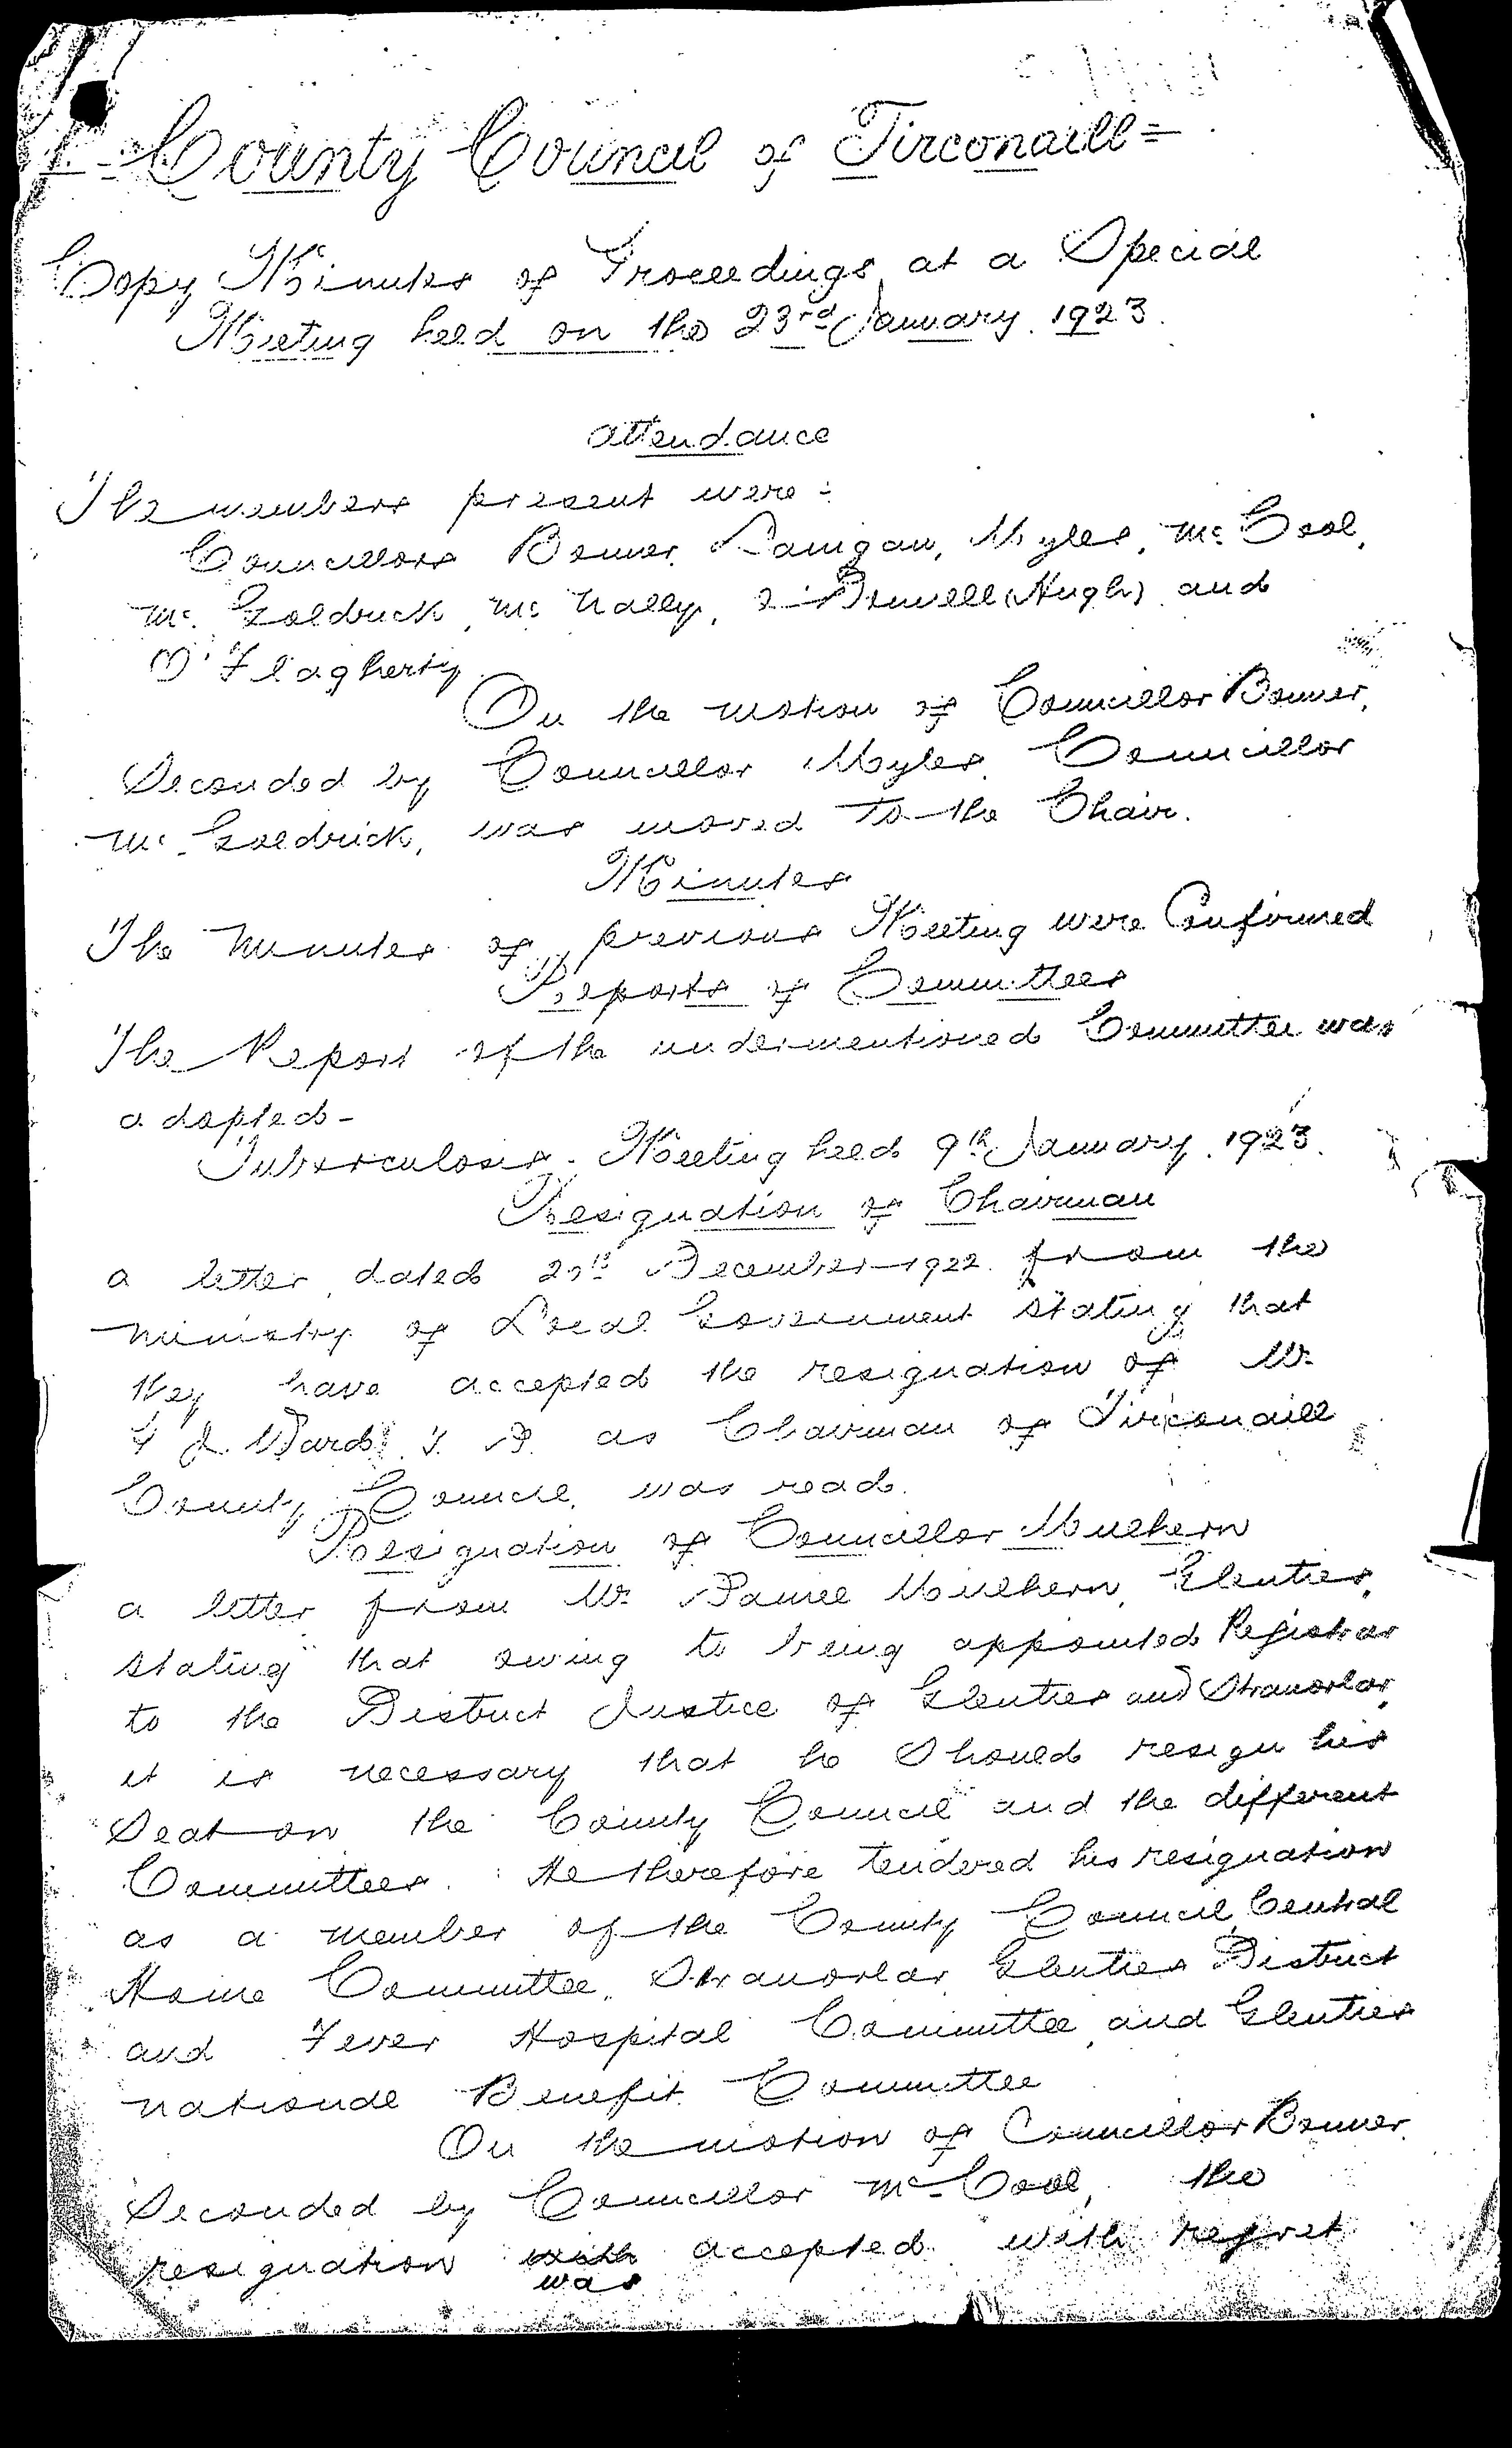 = County Council of Tirconaill =
Copy Minutes of Proceedings at a Special
Meeting held on the 23rd January. 1923.
Attendance
The members present were:
Councillors Bonner, Lanigan, Myles, McCool,
McGoldrick, McNally, (Hugh) and
O'Flagherty.
On the motion of Councillor Bonner,
Seconded by Councillor Myles, Councillor
McGoldrick, was moved to the Chair.
Minutes
The Minutes of previous Meeting were Confirmed
Reports of Committees
The Report of the undermentioned Committee was
adopted-
Tuberculosis - Meeting held 9th January. 1923.
Resignation of Chairman
a letter dated December 1922 from the
Ministry of Local Government stating that
they have accepted the resignation of Mr.
Ward as Chairman of Tirconaill
County Council, was read.
Resignation of Councillor Mulhern
a letter from Mr. Mulhern, Glenties,
stating that owing to being appointed Registrar
to the District Justice of Glenties and Stranorlar,
it is necessary that he should resign his
Seat on the County Council and the different
Committees. He therefore tendered his resignation
as a member of the County Council, Central
Home Committee, Stranorlar, Glenties District
and Fever Hospital Committee, and Glenties
National Benefit Committee
On the motion of Councillor Bonner,
Seconded by Councillor McCool, the
resignation was accepted with regret